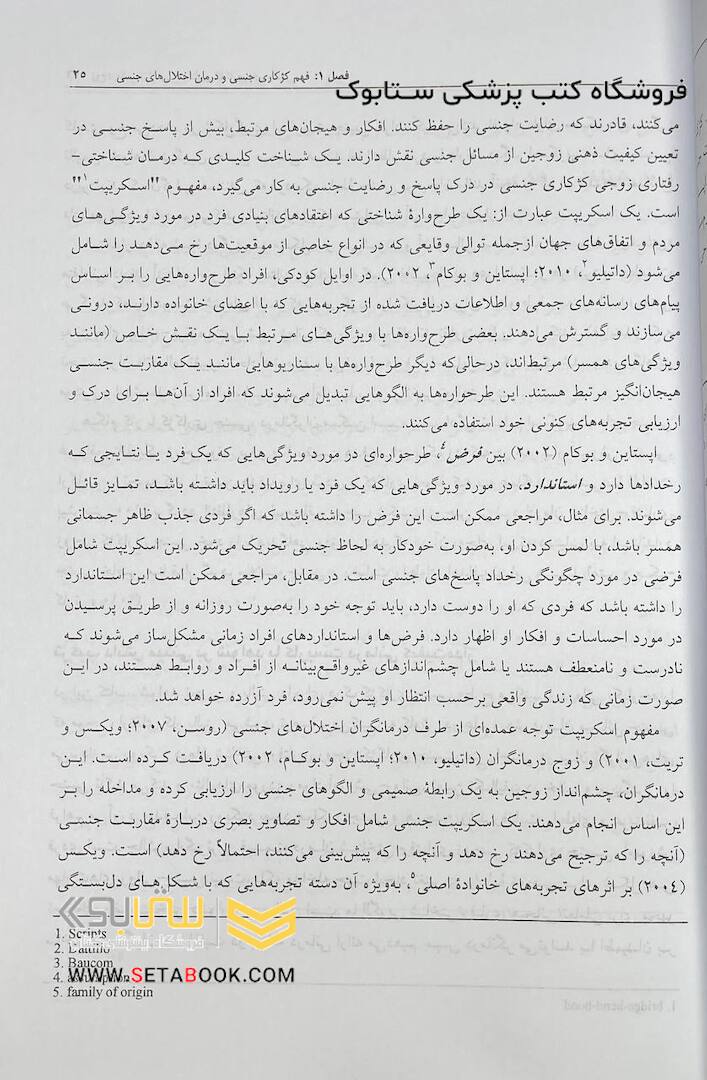 فصل ۱: فهم کژکاری جنسی و درمان اختلال‌های جنسی ۲۵
فروشگاه کتب پزشکی ستابوک
می‌کنند، قادرند که رضایت جنسی را حفظ کنند. افکار و هیجان‌های مرتبط، بیش از پاسخ جنسی در
تعیین کیفیت ذهنی زوجین از مسائل جنسی نقش دارند. یک شناخت کلیدی که درمان شناختی-
رفتاری زوجی کژکاری جنسی در درک پاسخ و رضایت جنسی به کار می‌گیرد، مفهوم "اسکریپت۱"
است. یک اسکریپت عبارت از: یک طرح‌وارهٔ شناختی که اعتقادهای بنیادی فرد در مورد ویژگی‌های
مردم و اتفاق‌های جهان ازجمله توالی وقایعی که در انواع خاصی از موقعیت‌ها رخ می‌دهد را شامل
می‌شود (داتیلیو۲، ۲۰۱۰؛ اپستاین و بوکام۳، ۲۰۰۲). در اوایل کودکی، افراد طرح‌واره‌هایی را بر اساس
پیام‌های رسانه‌های جمعی و اطلاعات دریافت شده از تجربه‌هایی که با اعضای خانواده دارند، درونی
می‌سازند و گسترش می‌دهند. بعضی طرح‌واره‌ها با ویژگی‌های مرتبط با یک نقش خاص (مانند
ویژگی‌های همسر) مرتبط‌اند، درحالی‌که دیگر طرح‌واره‌ها با سناریوهایی مانند یک مقاربت جنسی
هیجان‌انگیز مرتبط هستند. این طرحواره‌ها به الگوهایی تبدیل می‌شوند که افراد از آن‌ها برای درک و
ارزیابی تجربه‌های کنونی خود استفاده می‌کنند.
اپستاین و بوکام (۲۰۰۲) بین فرض۴، طرحواره‌ای در مورد ویژگی‌هایی که یک فرد یا نتایجی که
رخدادها دارد و استاندارد، در مورد ویژگی‌هایی که یک فرد یا رویداد باید داشته باشد، تمایز قائل
می‌شوند. برای مثال، مراجعی ممکن است این فرض را داشته باشد که اگر فردی جذب ظاهر جسمانی
همسر باشد، با لمس کردن او، به‌صورت خودکار به لحاظ جنسی تحریک می‌شود. این اسکریپت شامل
فرضی در مورد چگونگی رخداد پاسخ‌های جنسی است. در مقابل، مراجعی ممکن است این استاندارد
را داشته باشد که فردی که او را دوست دارد، باید توجه خود را به‌صورت روزانه و از طریق پرسیدن
در مورد احساسات و افکار او اظهار دارد. فرض‌ها و استانداردهای افراد زمانی مشکل‌ساز می‌شوند که
نادرست و نامنعطف هستند یا شامل چشم‌اندازهای غیرواقع‌بینانه از افراد و روابط هستند، در این
صورت زمانی که زندگی واقعی برحسب انتظار او پیش نمی‌رود، فرد آزرده خواهد شد.
مفهوم اسکریپت توجه عمده‌ای از طرف درمانگران اختلال‌های جنسی (روسن، ۲۰۰۷؛ ویکس و
تریت، ۲۰۰۱) و زوج درمانگران (داتیلیو، ۲۰۱۰؛ اپستاین و بوکام، ۲۰۰۲) دریافت کرده است. این
درمانگران، چشم‌انداز زوجین به یک رابطهٔ صمیمی و الگوهای جنسی را ارزیابی کرده و مداخله را بر
این اساس انجام می‌دهند. یک اسکریپت جنسی شامل افکار و تصاویر بصری دربارهٔ مقاربت جنسی
(آنچه را که ترجیح می‌دهند رخ دهد و آنچه را که پیش‌بینی می‌کنند، احتمالاً رخ دهد) است. ویکس
(۲۰۰٤) بر اثرهای تجربه‌های خانوادهٔ اصلی۵، به‌ویژه آن دسته تجربه‌هایی که با شکل‌های دل‌بستگی
ستابوک
1. Scripts
2. Dattilio
3. Baucom
4. assumption
WWW.SETABOOK.COM
5. family of origin